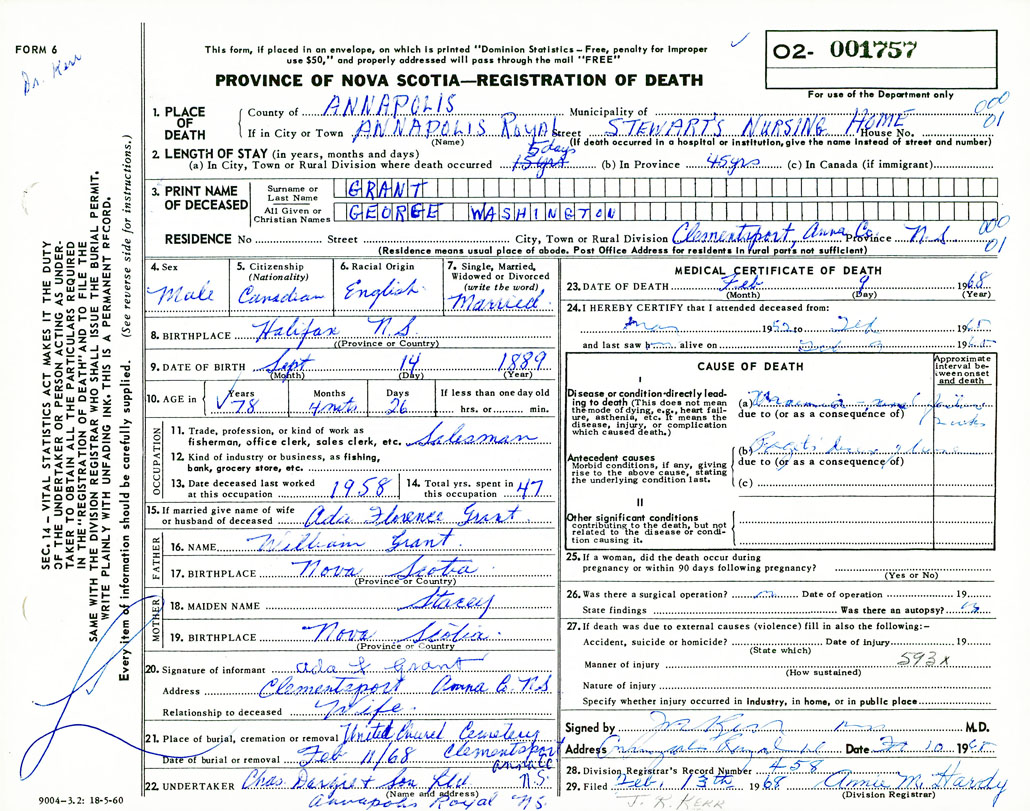 FORM 6
Dr. Kerr
This form, if placed in an envelope, on which is printed "Dominion Statistics – Free, penalty for Improper
use $50," and properly addressed will pass through the mail "FREE"
PROVINCE OF NOVA SCOTIA—REGISTRATION OF DEATH
O2- 001757
For use of the Department only
000
01
1. PLACE OF DEATH
County of ANNAPOLIS Municipality of
If in City or Town ANNAPOLIS ROYAL Street STEWART'S NURSING HOME House No.
(Name) (If death occurred in a hospital or institution, give the name instead of street and number)
2. LENGTH OF STAY (in years, months and days) 5 days
(a) In City, Town or Rural Division where death occurred 15 yrs (b) In Province 45 yrs (c) In Canada (if immigrant)
3. PRINT NAME OF DECEASED
Surname or Last Name GRANT
All Given or Christian Names GEORGE WASHINGTON
000
01
RESIDENCE No Street City, Town or Rural Division Clementsport, Anna Co. Province N.S.
(Residence means usual place of abode. Post Office Address for residents in rural parts not sufficient)
4. Sex
Male
5. Citizenship
(Nationality)
Canadian
6. Racial Origin
English
7. Single, Married,
Widowed or Divorced
(write the word)
Married
8. BIRTHPLACE Halifax N.S.
((Province or Country)
9. DATE OF BIRTH Sept 14 1889
(Month) (Day) (Year)
10. AGE in
Years Months Days If less than one day old
78 4 mths 26 hrs. or min.
OCCUPATION
11. Trade, profession, or kind of work as
fisherman, office clerk, sales clerk, etc. Salesman
12. Kind of industry or business, as fishing,
bank, grocery store, etc.
13. Date deceased last worked
at this occupation 1958
14. Total yrs. spent in
this occupation 47
15. If married give name of wife
or husband of deceased Ada Florence Grant
FATHER
16. NAME William Grant
17. BIRTHPLACE Nova Scotia
(Province or Country)
MOTHER
18. MAIDEN NAME Stacey
19. BIRTHPLACE Nova Scotia
(Province or Country)
20. Signature of informant Ada F Grant
Address Clementsport Anna Co. N.S
Relationship to deceased Wife
21. Place of burial, cremation or removal United Church Cemetery
Date of burial or removal Feb 11/68 Clementsport
Anna Co
N.S.
22. UNDERTAKER Chas. & Son Ltd
(Name and address)
Annapolis Royal N.S.
9004-3.2: 18-5-60
MEDICAL CERTIFICATE OF DEATH
23. DATE OF DEATH Feb 9 1968
(Month) (Day) (Year)
24. I HEREBY CERTIFY that I attended deceased from:
19 to Feb 19
and last saw h alive on Feb 9 19
CAUSE OF DEATH
Approximate
interval be-
tween onset
and death
I
Disease or condition directly lead-
ing to death (This does not mean
the mode of dying, e.g., heart fail-
ure, asthenia, etc. It means the
disease, injury, or complication
which caused death.)
(a)
due to (or as a consequence of)
(b)
due to (or as a consequence of)
(c)
Antecedent causes
Morbid conditions, if any, giving
rise to the above cause, stating
the underlying condition last.
II
Other significant conditions
contributing to the death, but not
related to the disease or condi-
tion causing it.
25. If a woman, did the death occur during
pregnancy or within 90 days following pregnancy?
(Yes or No)
26. Was there a surgical operation? Date of operation 19
State findings Was there an autopsy?
27. If death was due to external causes (violence) fill in also the following:-
Accident, suicide or homicide? Date of Injury 19
(State which)
593x
Manner of injury
(How sustained)
Nature of injury
Specify whether injury occurred in Industry, in home, or in public place
Signed by Kerr M.D.
Address Annapolis Royal Date 10 19
28. Division Registrar's Record Number 458
29. Filed Feb. 13th 1968 Annie M. Hardy
(Division Registrar)
J. K. KERR
SEC. 14 – VITAL STATISTICS ACT MAKES IT THE DUTY
OF THE UNDERTAKER OR PERSON ACTING AS UNDER-
TAKER TO OBTAIN ALL THE PARTICULARS REQUIRED
IN THE "REGISTRATION OF DEATH" AND TO FILE THE
SAME WITH THE DIVISION REGISTRAR WHO SHALL ISSUE THE BURIAL PERMIT.
WRITE PLAINLY WITH UNFADING INK. THIS IS A PERMANENT RECORD.
Every item of information should be carefully supplied. (See reverse side for instructions.)